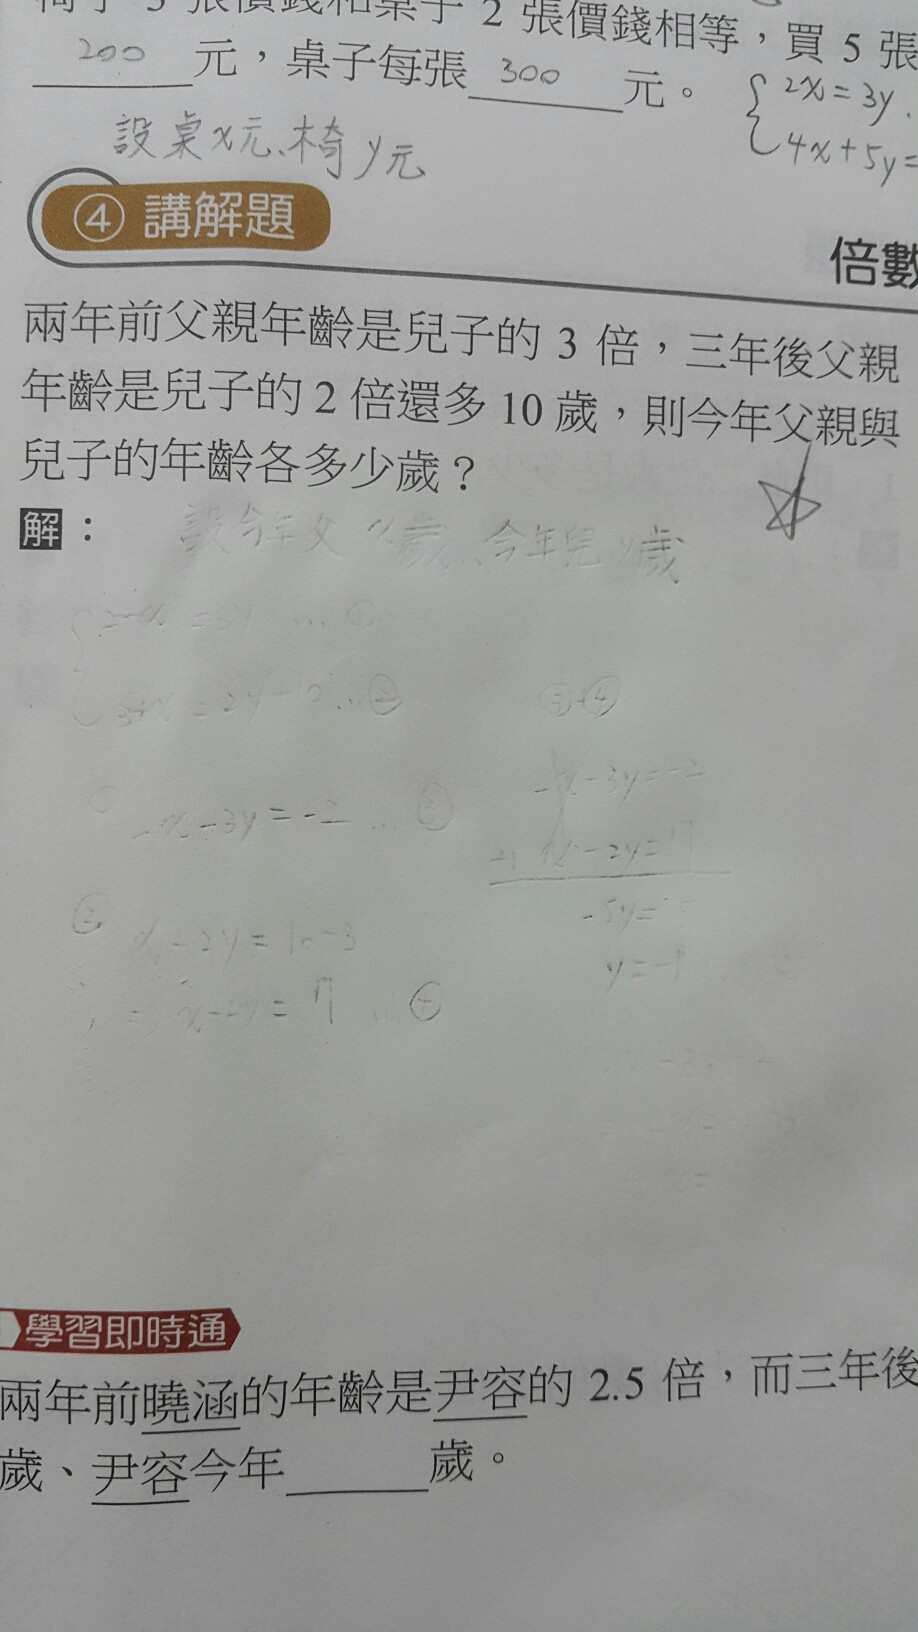 椅子 3 張價錢和桌子 2 張價錢相等，買 5 張
200 元，桌子每張 300 元。
2x=3y
4x+5y=
設桌x元、椅y元
④ 講解題
倍數
兩年前父親年齡是兒子的 3 倍，三年後父親
年齡是兒子的 2 倍還多 10 歲，則今年父親與
兒子的年齡各多少歲？
解：
設今年父x歲、今年兒y歲
2-x=3y ... ①
3+x=2y+10 ... ②
③+④
-x-3y=-2 ... ③
-x-3y=-2
+) x-2y=7
-5y=5
y=-1
② x-2y=10-3
=> x-2y=7 ... ④
學習即時通
兩年前曉涵的年齡是尹容的 2.5 倍，而三年後
歲、尹容今年 歲。